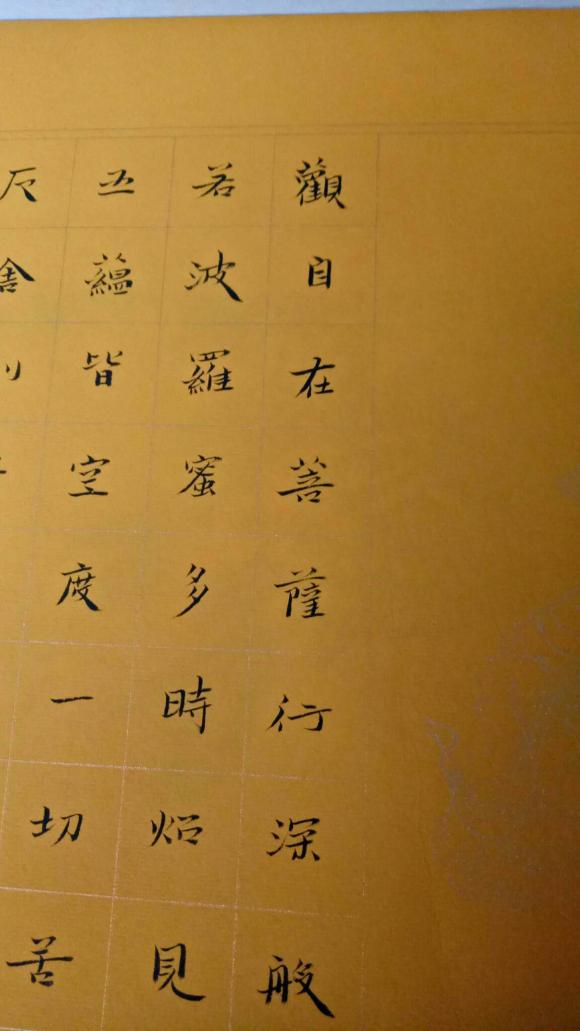 觀自在菩薩行深般
若波羅蜜多時炤見
五蘊皆空度一切苦
厄舍利